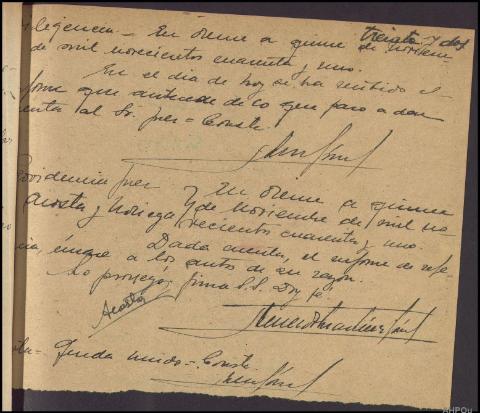 treinta y dos
ligencia.- En Orense a quince de noviem
de mil novecientos cuarenta y uno.
En el día de hoy se ha recibido el
forme que antecede de lo que paso a dar
enta al Sr. Juez = Conste.
ovidencia Juez y En Orense a quince
Acosta y Noriega y de noviembre de mil no
vecientos cuarenta y uno.
Dada cuenta, el informe de refe-
ia, únase a los autos de su razón.
Lo proveyó, firma S.S. Doy fe.
Acosta
Queda unido = Conste.
AHPOu